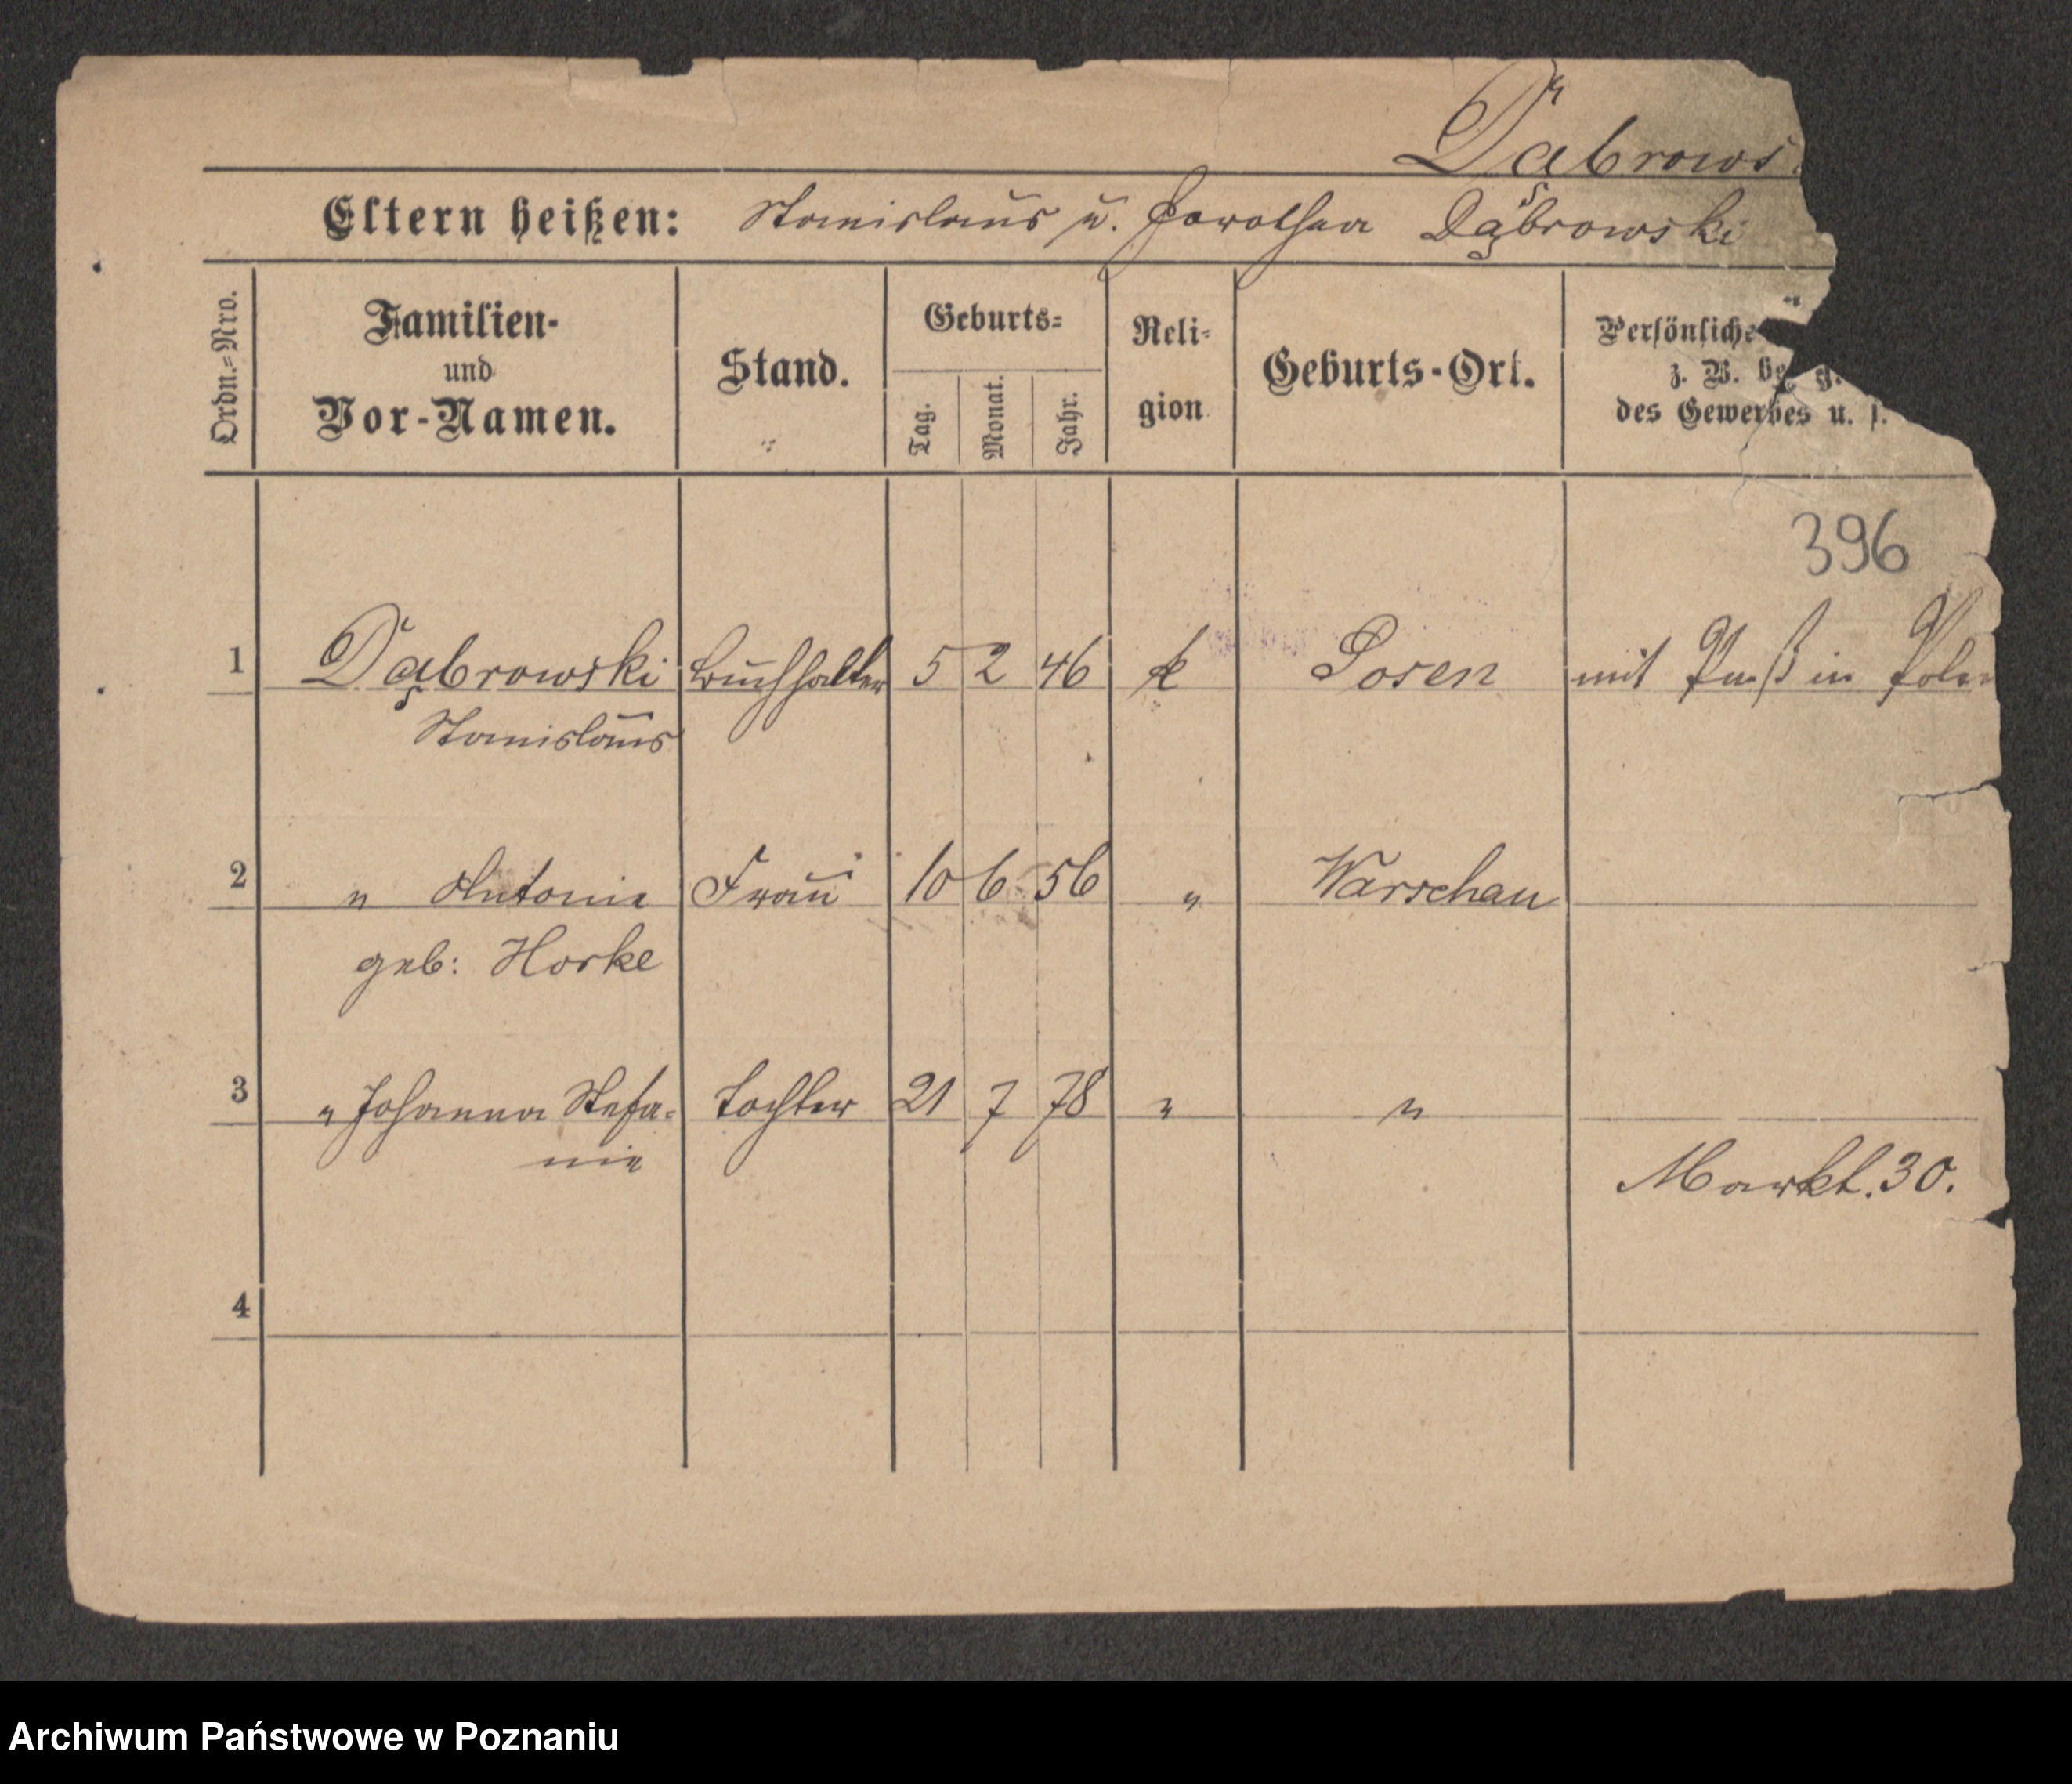 Dabrows
Eltern heißen: Stanislaus u. Dorothea Dąbrowski
Ordn.-Nro.
Familien-
und
Vor-Namen.
Stand.
Geburts-
Tag.
Monat.
Jahr.
Reli-
gion
Geburts-Ort.
Persönliche
z. B.
des Gewerbes u. s.
396
1 Dąbrowski Buchhalter 5 2 46 k Posen mit Paß in Polen
Stanislaus
2 " Antonie Frau 10 6 56 " Warschau
geb: Horke
3 " Johanna Stefa- Tochter 21 7 78 " "
nie
Markt. 30.
4
Archiwum Państwowe w Poznaniu